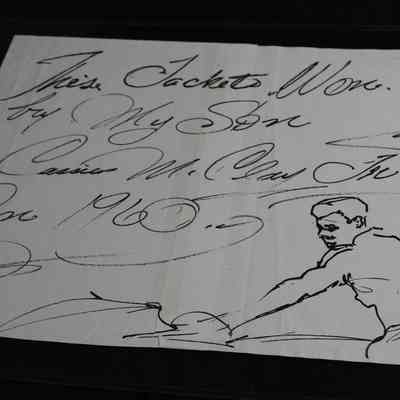 These Jackets Worn.
by My Son
Cassius M. Clay Jr
In 1960